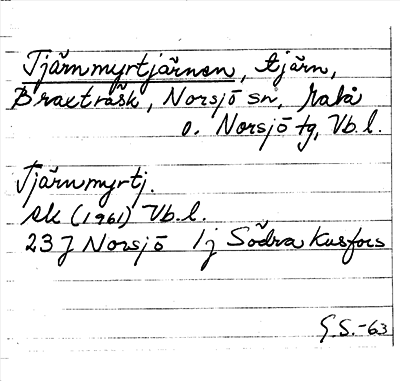 Tjärnmyrtjärnen, tjärn,
Braxträsk, Norsjö sn, Malå
o. Norsjö tg, Vb.l.
Tjärnmyrtj.
ek (1961) Vb.l.
23 J Norsjö 1j Södra Kusfors
G.S.-63